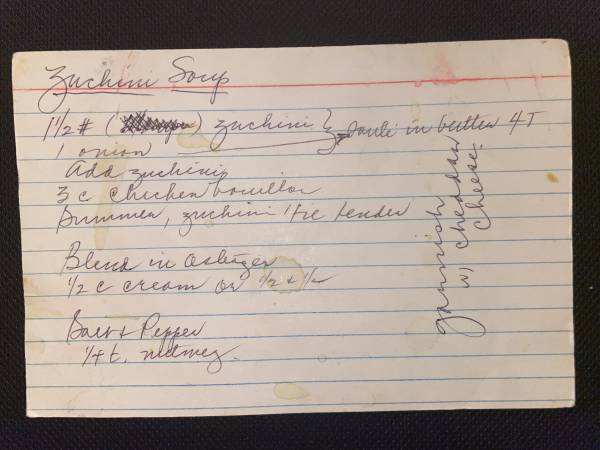 Zuchini Soup
1 1/2 # ( ) zuchini } Sauté in butter 4 T
1 onion
Add zuchini
3 c chicken bouillon
Summer, zuchini til tender
Blend in Osterizer
1/2 c cream or 1/2 & 1/2
Salt & Pepper
1/4 t. nutmeg.
garnish
w/ cheddar
cheese